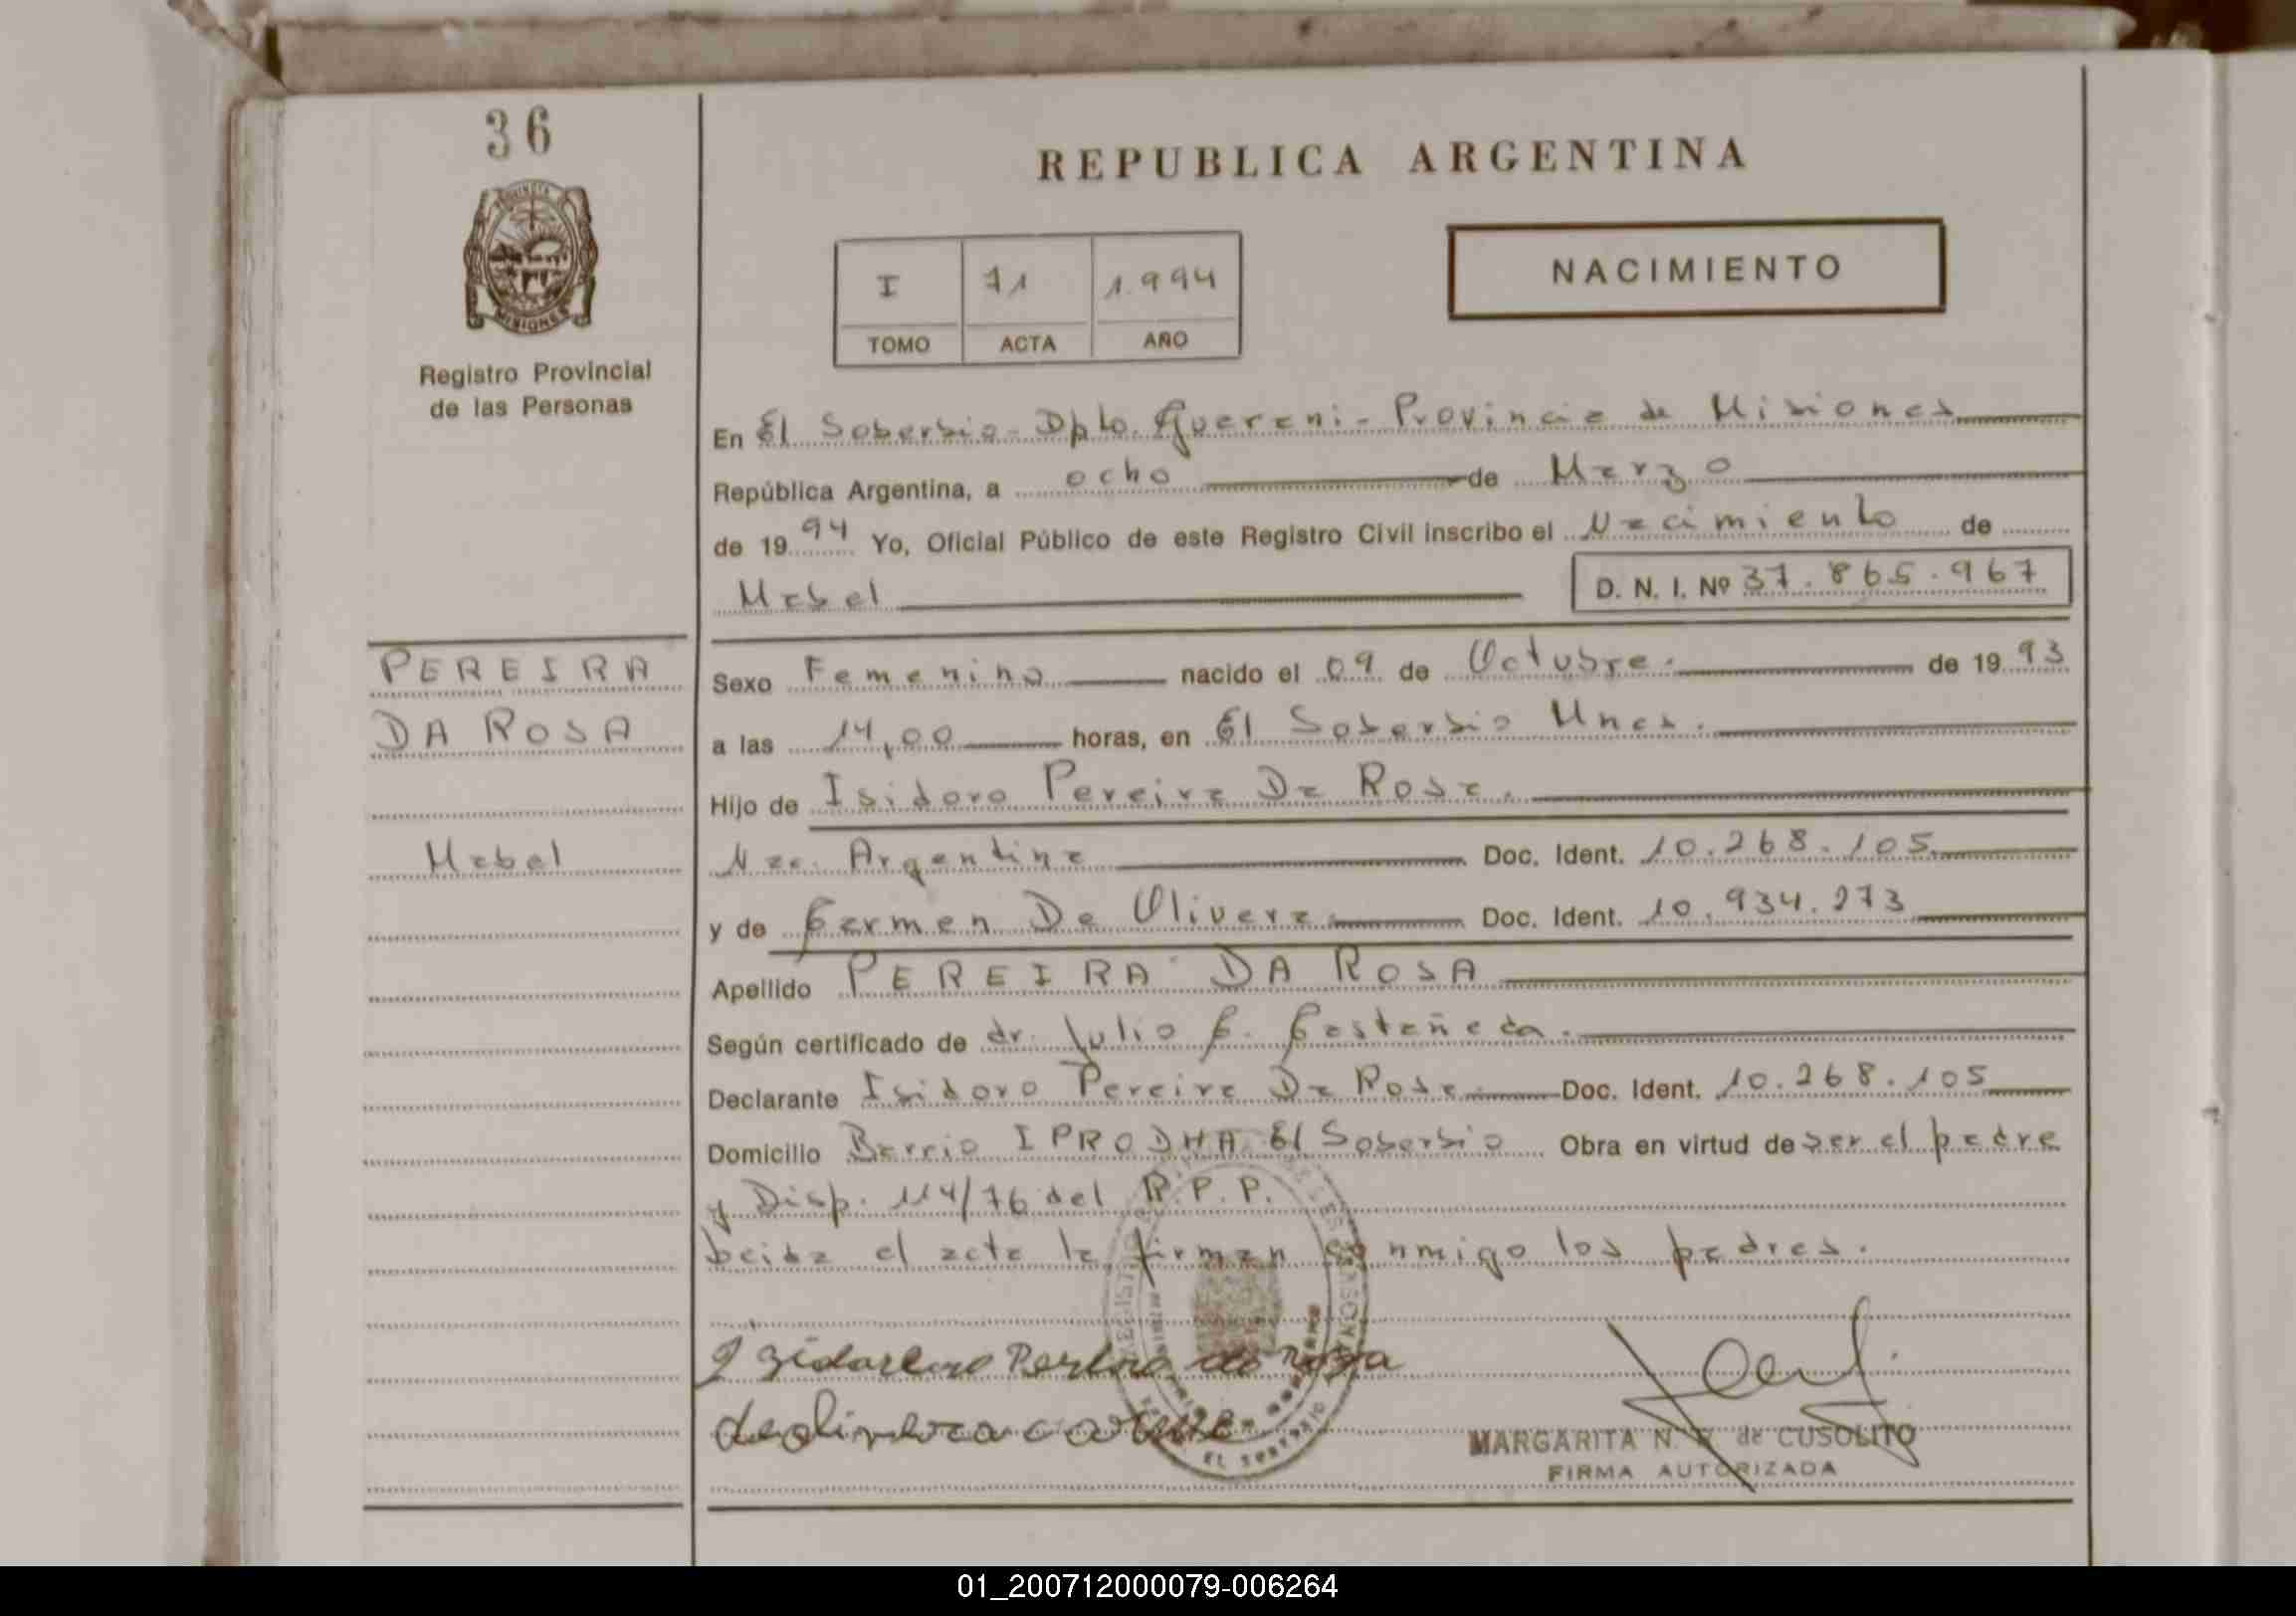 36
PROVINCIA
MISIONES
Registro Provincial
de las Personas
REPUBLICA ARGENTINA
I 71 1.994
TOMO ACTA AÑO
NACIMIENTO
En El Soberbio - Dpto. Guarani - Provincia de Misiones
República Argentina, a ocho de Marzo
de 1994 Yo, Oficial Público de este Registro Civil inscribo el Nacimiento de
Mabel D. N. I. Nº 37.865.967
PEREIRA
DA ROSA
Mabel
Sexo Femenino nacido el 09 de Octubre. de 1993
a las 14,00 horas, en El Soberbio Mnes.
Hijo de Isidoro Pereira Da Rosa.
Nac. Argentina Doc. Ident. 10.268.105
y de Carmen De Olivera Doc. Ident. 10.934.273
Apellido PEREIRA DA ROSA
Según certificado de dr. Julio C. Castañeda.
Declarante Isidoro Pereira Da Rosa Doc. Ident. 10.268.105
Domicilio Barrio IPRODHA El Soberbio Obra en virtud de ser el padre
y Disp. 114/76 del R.P.P.
Leida el acta la firman conmigo los padres.
de rosa
de olivera
EL SOBERBIO
MARGARITA N. de CUSOLITO
FIRMA AUTORIZADA
01_200712000079-006264